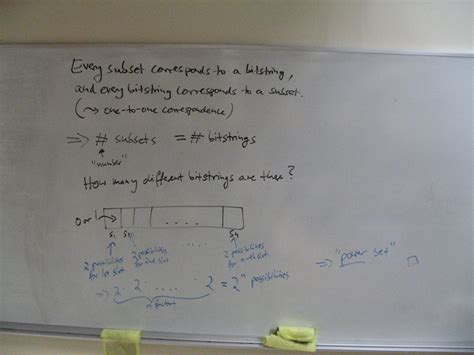 Every subset corresponds to a bitstring,
and every bitstring corresponds to a subset.
(⤳ one-to-one correspondence)
=> # subsets = # bitstrings
"number"
How many different bitstrings are there?
0 or 1 → ....
s₁ s₂ sₙ
2 possibilities for 1st slot 2 possibilities for 2nd slot ..... 2 possibilities for n-th slot
=> 2 · 2 · .... · 2 = 2ⁿ possibilities
n
=> "power set" □